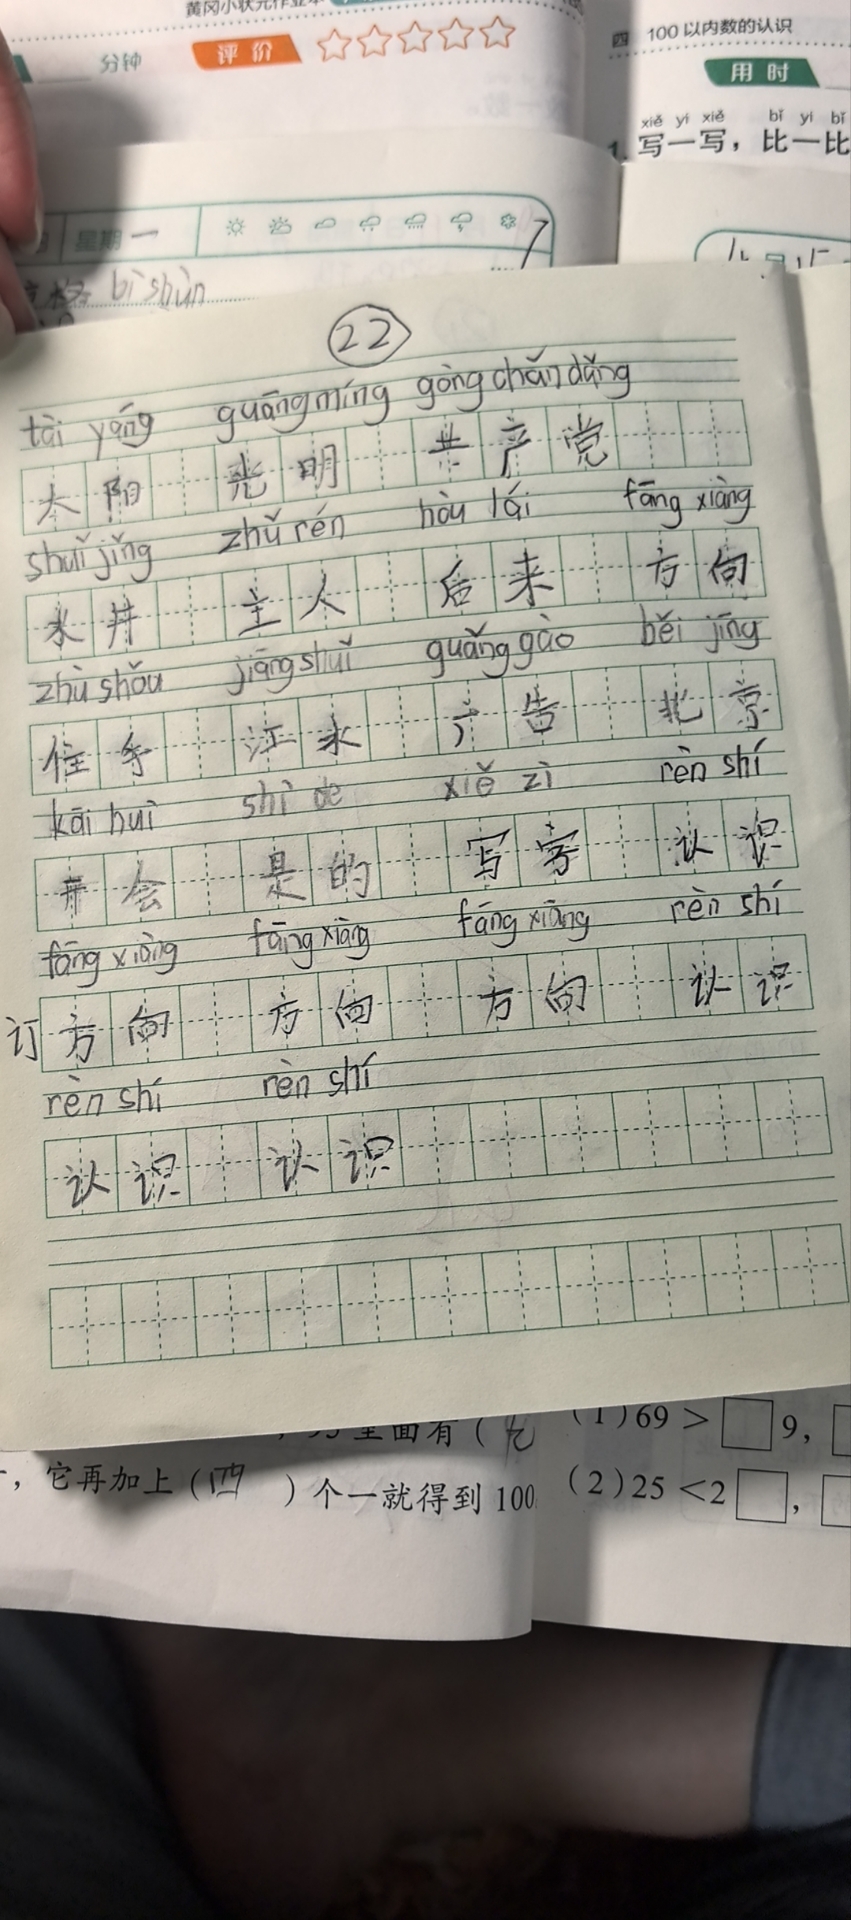 分钟 评价
四 100以内数的认识
用时
xiě yi xiě bǐ yi bǐ
1. 写一写，比一比
星期一
bǐ shùn
22
tài yáng guāng míng gòng chǎn dǎng
太阳 光明 共产党
shuǐ jǐng zhǔ rén hòu lái fāng xiàng
水井 主人 后来 方向
zhù shǒu jiāng shuǐ guǎng gào běi jīng
住手 江水 广告 北京
kāi huì shì de xiě zì rèn shí
开会 是的 写字 认识
fāng xiàng fāng xiàng fāng xiàng rèn shí
订 方向 方向 方向 认识
rèn shí rèn shí
认识 认识
里面有（九
，它再加上（四 ）个一就得到100
(1)69＞□9，
(2)25＜2□，